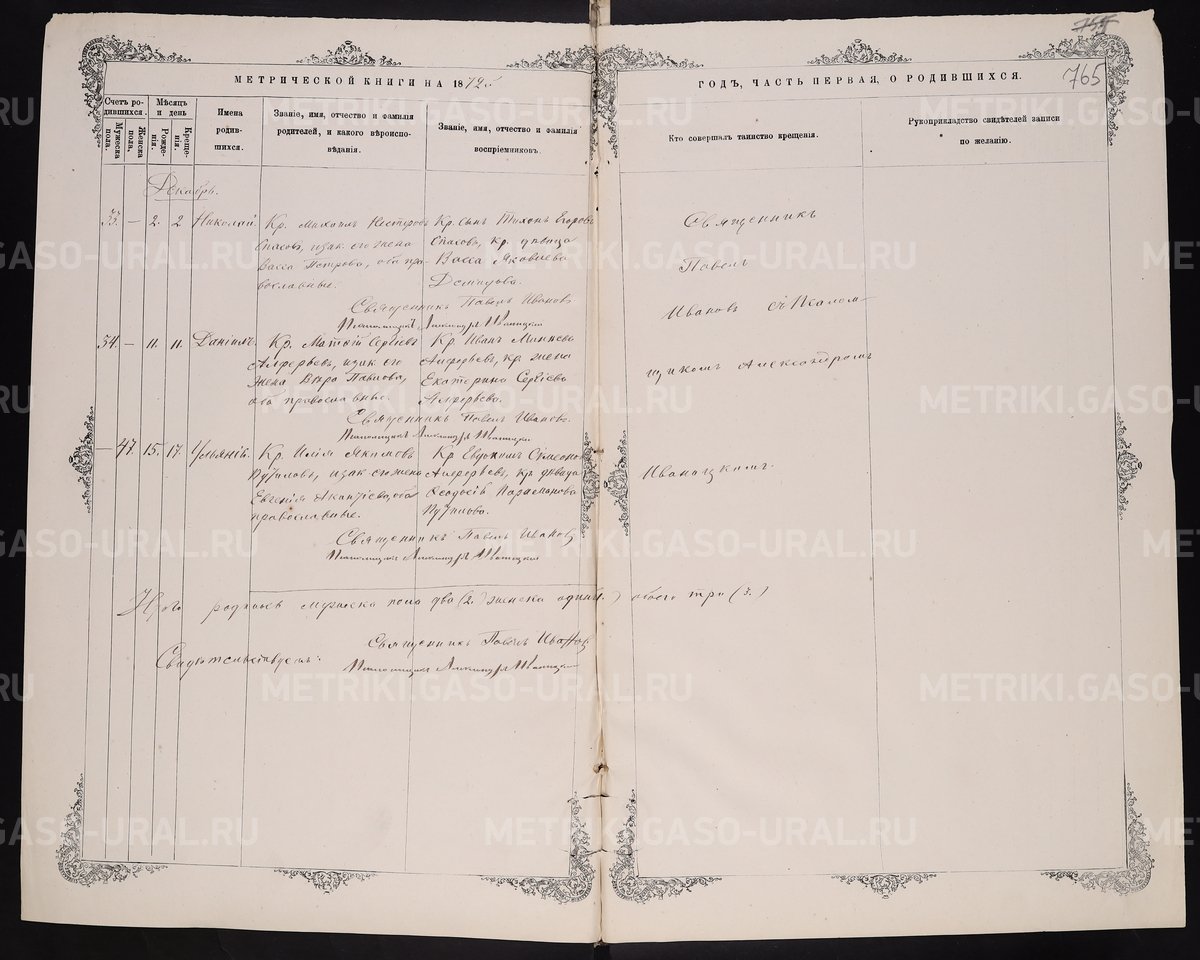 МЕТРИЧЕСКОЙ КНИГИ НА 1872
ГОДЪ, ЧАСТЬ ПЕРВАЯ, О РОДИВШИХСЯ.
765
Счетъ ро-
дившихся.
Мужеска
пола.
Женска
пола.
Мѣсяцъ
и день
Рожде-
нія.
Креще-
нія.
Имена
родив-
шихся.
Званіе, имя, отчество и фамилія
родителей, и какого вѣроиспо-
вѣданія.
Званіе, имя, отчество и фамилія
воспріемниковъ.
Кто совершалъ таинство крещенія.
Рукоприкладство свидѣтелей записи
по желанію.
Декабрь.
33. — 2. 2 Николай.
Кр. Михаилъ Нестеровъ
Спасовъ, и зак. его жена
Васса Петрова, оба пра-
вославные.
Кр. сынъ Тихонъ Егоровъ
Спасовъ, кр. дѣвица
Васса Яковлева
Демидова.
Священникъ Павелъ Ивановъ
Псаломщикъ Александръ
34. — 11. 11. Даніилъ.
Кр. Матѳій Сергѣевъ
Алферьевъ, и зак. его
жена Вѣра Павлова,
оба православные.
Кр. Иванъ Минѣевъ
Алферьевъ, кр. жена
Екатерина Сергѣева
Алферьева.
Священникъ Павелъ Ивановъ.
Псаломщикъ Александръ
— 47. 15. 17. Ульянія.
Кр. Илія Якимовъ
и зак. его жена
Евгенія оба
православные.
Кр. Евдокимъ Симеоновъ
Алферьевъ, кр. дѣвица
Ѳеодосія
Священникъ Павелъ Ивановъ
Псаломщикъ Александръ
Священникъ
Павелъ
Ивановъ съ Псалом-
щикомъ Александромъ
Итого родилось мужеска пола два (2.) женска одинъ обоего три (3.)
Свидѣтельствуемъ:
Священникъ Павелъ Ивановъ
Псаломщикъ Александръ
METRIKI.GASO-URAL.RU